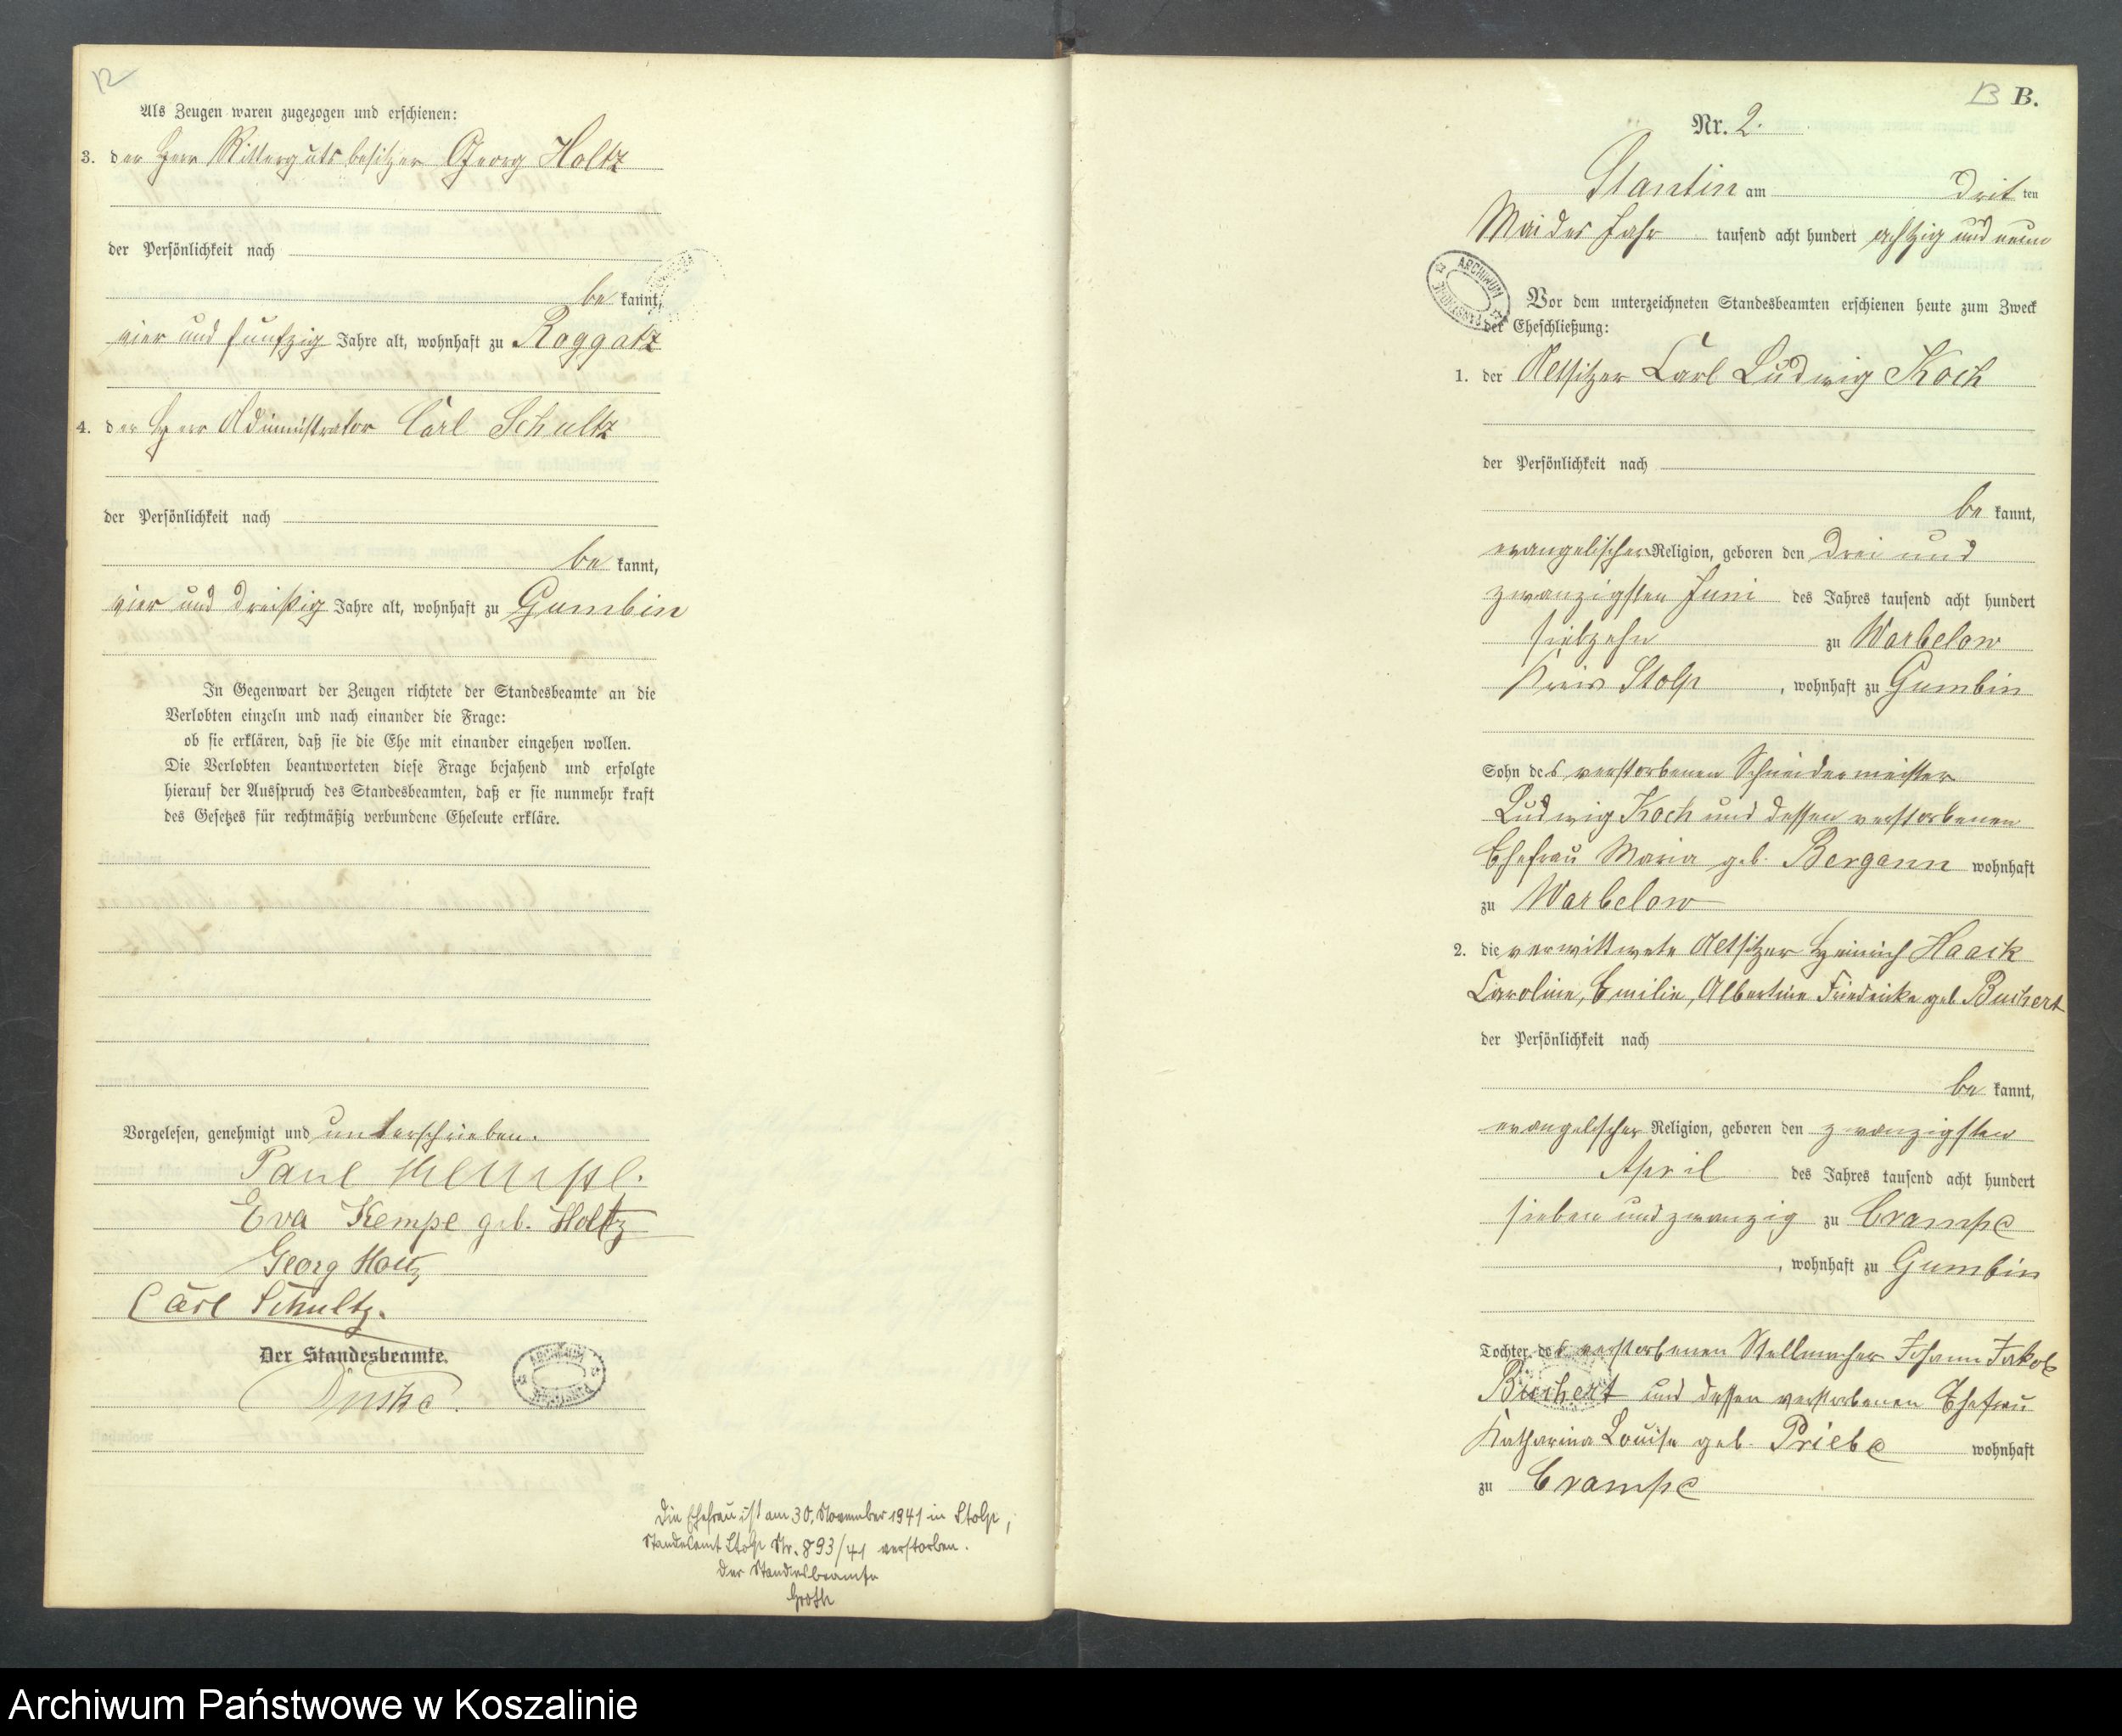 12
Als Zeugen waren zugezogen und erschienen:
3. der Herr Rittergutsbesitzer Georg Holtz
der Persönlichkeit nach
be kannt,
vier und fünfzig Jahre alt, wohnhaft zu Roggatz
4. der Herr Administrator Carl Schultz
der Persönlichkeit nach
be kannt,
vier und dreißig Jahre alt, wohnhaft zu Gumbin
In Gegenwart der Zeugen richtete der Standesbeamte an die
Verlobten einzeln und nach einander die Frage:
ob sie erklären, daß sie die Ehe mit einander eingehen wollen.
Die Verlobten beantworteten diese Frage bejahend und erfolgte
hierauf der Ausspruch des Standesbeamten, daß er sie nunmehr kraft
des Gesetzes für rechtmäßig verbundene Eheleute erkläre.
Vorgelesen, genehmigt und unterschrieben.
Paul Kempe.
Eva Kempe geb. Holtz
Georg Holtz
Carl Schultz.
Der Standesbeamte.
ARCHIWUM PAŃSTWOWE
Die Ehefrau ist am 30. November 1941 in Stolp,
Standesamt Stolp Nr. 893/41 verstorben.
Der Standesbeamte
Groth
13 B.
Nr. 2.
Stantin am drit ten
Mai des Jahr tausend acht hundert achtzig und neun
ARCHIWUM PAŃSTWOWE
Vor dem unterzeichneten Standesbeamten erschienen heute zum Zweck
der Eheschließung:
1. der Altsitzer Carl Ludwig Koch
der Persönlichkeit nach
be kannt,
evangelischer Religion, geboren den drei und
zwanzigsten Juni des Jahres tausend acht hundert
siebzehn zu Warbelow
Kreis Stolp, wohnhaft zu Gumbin
Sohn des verstorbenen Schneidermeister
Ludwig Koch und dessen verstorbenen
Ehefrau Maria geb. Bergann wohnhaft
zu Warbelow
2. die verwittwete Altsitzer Heinrich Haack
Caroline, Emilie, Albertine Friedricke geb Buchert
der Persönlichkeit nach
be kannt,
evangelischer Religion, geboren den zwanzigsten
April des Jahres tausend acht hundert
sieben und zwanzig zu Crampe
, wohnhaft zu Gumbin
Tochter des verstorbenen Stellmacher Johann Jakob
Buchert und dessen verstorbenen Ehefrau
Katharina Louise geb. Priebe wohnhaft
zu Crampe
Archiwum Państwowe w Koszalinie